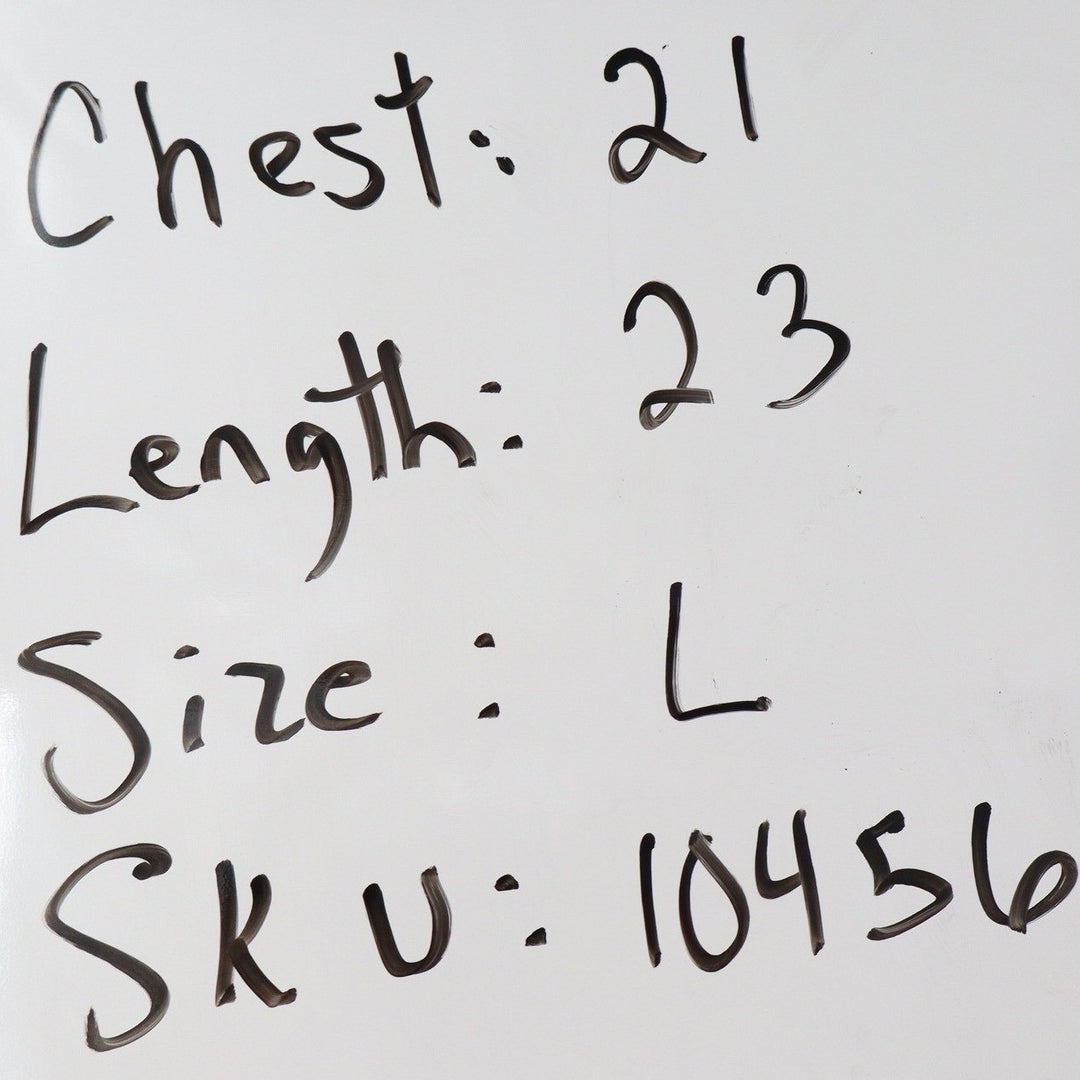 Chest: 21
Length: 23
Size: L
SKU: 10456